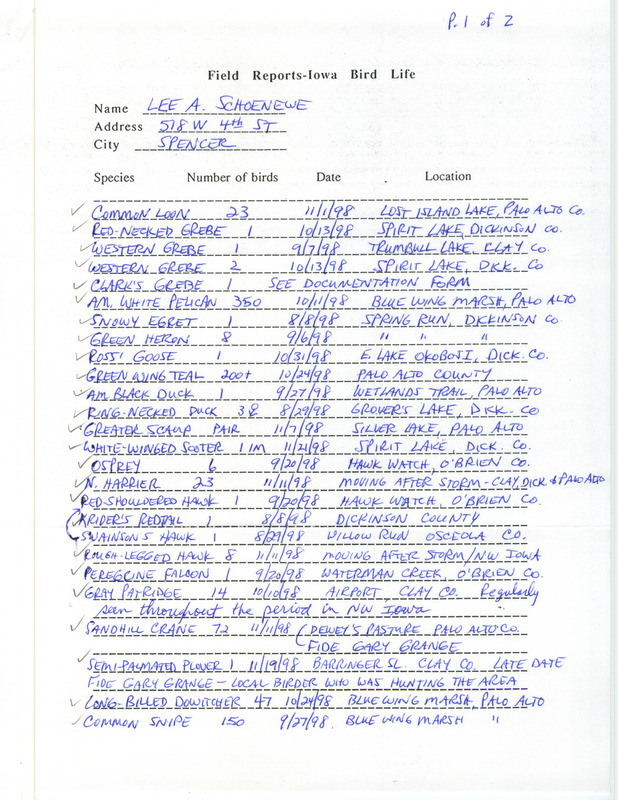 P. 1 of 2
Field Reports-Iowa Bird Life
Name LEE A. SCHOENEWE
Address 518 W 4th ST
City SPENCER
Species Number of birds Date Location
COMMON LOON 23 11/1/98 LOST ISLAND LAKE, PALO ALTO CO.
RED-NECKED GREBE 1 10/13/98 SPIRIT LAKE, DICKINSON CO.
WESTERN GREBE 1 9/7/98 TRUMBULL LAKE, CLAY CO.
WESTERN GREBE 2 10/13/98 SPIRIT LAKE, DICK. CO
CLARK'S GREBE 1 SEE DOCUMENTATION FORM
AM. WHITE PELICAN 350 10/11/98 BLUE WING MARSH, PALO ALTO
SNOWY EGRET 1 8/8/98 SPRING RUN, DICKINSON CO.
GREEN HERON 8 9/6/98 " " "
ROSS' GOOSE 1 10/31/98 E. LAKE OKOBOJI, DICK. CO.
GREEN WING TEAL 200+ 10/24/98 PALO ALTO COUNTY
AM. BLACK DUCK 1 9/27/98 WETLANDS TRAIL, PALO ALTO
RING-NECKED DUCK 38 8/29/98 GROVER'S LAKE, DICK. CO
GREATER SCAUP PAIR 11/7/98 SILVER LAKE, PALO ALTO
WHITE-WINGED SCOTER 1 IM 11/21/98 SPIRIT LAKE, DICK. CO.
OSPREY 6 9/20/98 HAWK WATCH, O'BRIEN CO.
N. HARRIER 23 11/11/98 MOVING AFTER STORM - CLAY, DICK & PALO ALTO
RED-SHOULDERED HAWK 1 9/20/98 HAWK WATCH, O'BRIEN CO.
KRIDER'S REDTAIL 1 8/8/98 DICKINSON COUNTY
SWAINSON'S HAWK 1 8/29/98 WILLOW RUN OSCEOLA CO.
ROUGH-LEGGED HAWK 8 11/11/98 MOVING AFTER STORM/NW IOWA
PEREGRINE FALCON 1 9/20/98 WATERMAN CREEK, O'BRIEN CO.
GRAY PATRIDGE 14 10/10/98 AIRPORT, CLAY CO. Regularly
seen throughout the period in NW Iowa
SANDHILL CRANE 72 11/11/98 (DEWEY'S PASTURE PALO ALTO CO.
FIDE GARY GRANGE
SEMI-PALMATED PLOVER 1 11/19/98 BARRINGER SL. CLAY CO. LATE DATE
FIDE GARY GRANGE - LOCAL BIRDER WHO WAS HUNTING THE AREA
LONG-BILLED DOWITCHER 47 10/24/98 BLUE WING MARSH, PALO ALTO
COMMON SNIPE 150 9/27/98 BLUE WING MARSH "